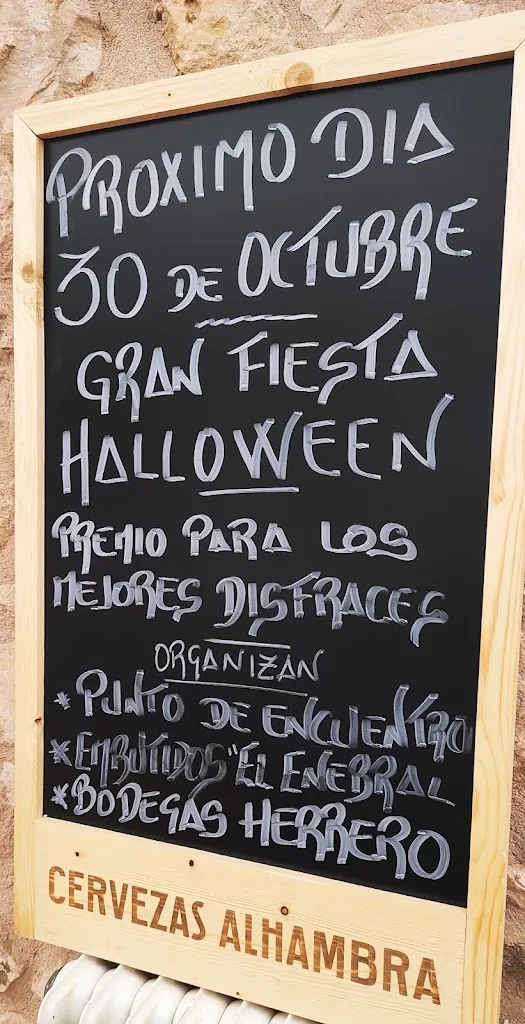 PROXIMO DIA
30 DE OCTUBRE
GRAN FIESTA
HALLOWEEN
PREMIO PARA LOS
MEJORES DISFRACES
ORGANIZAN
* PUNTO DE ENCUENTRO
* EMBUTIDOS "EL ENEBRAL
* BODEGAS HERRERO
CERVEZAS ALHAMBRA